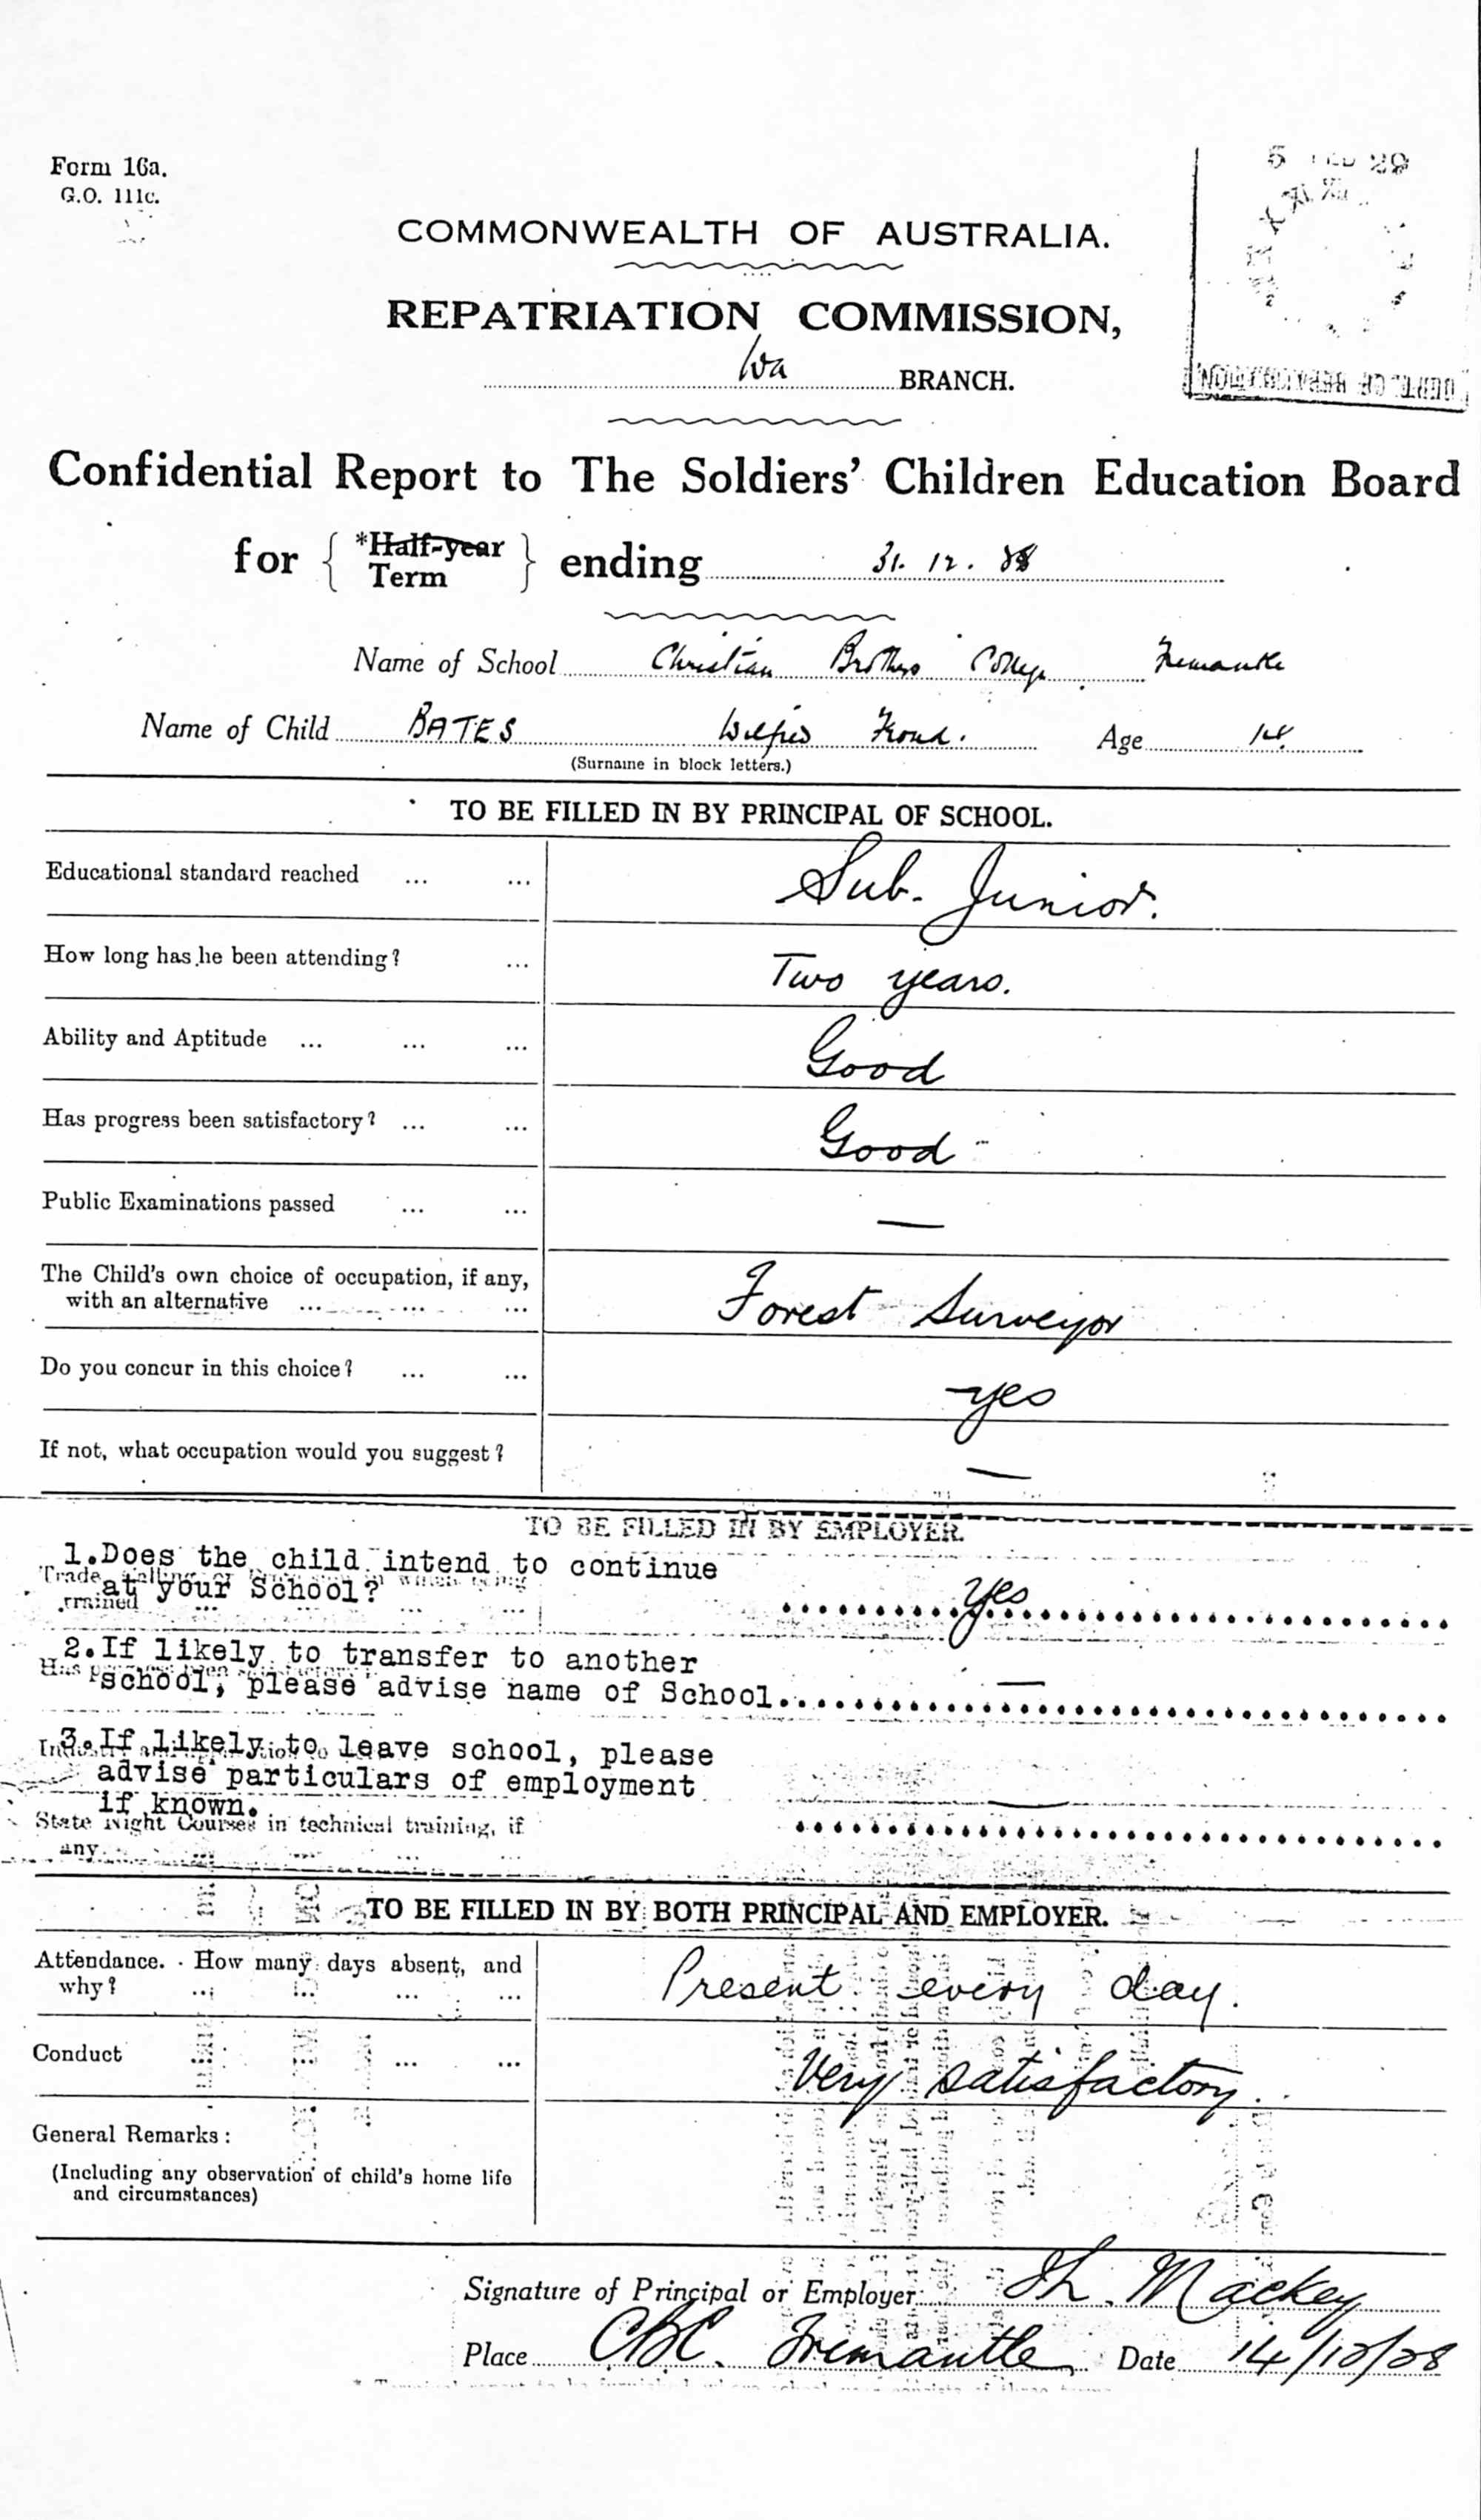 Form 16a.
G.O. 111c.
5 FEB 29
COMMONWEALTH OF AUSTRALIA.
REPATRIATION COMMISSION,
Wa BRANCH.
Confidential Report to The Soldiers' Children Education Board
for { *Half-year
Term } ending 31. 12. 28
Name of School Christian Brothers College Fremantle
Name of Child BATES Wilfred Age 14
(Surname in block letters.)
TO BE FILLED IN BY PRINCIPAL OF SCHOOL.
Educational standard reached ... ... Sub-Junior.
How long has he been attending? ... Two years.
Ability and Aptitude ... ... ... Good
Has progress been satisfactory? ... ... Good
Public Examinations passed ... ... —
The Child's own choice of occupation, if any,
with an alternative ... ... ... Forest Surveyor
Do you concur in this choice? ... ... yes
If not, what occupation would you suggest? —
TO BE FILLED IN BY EMPLOYER.
1.Does the child intend to continue
at your School? yes
Trade
trained
2.If likely to transfer to another
school, please advise name of School. —
3.If likely to leave school, please
advise particulars of employment
if known. —
State Night Courses in technical training, if
any
TO BE FILLED IN BY BOTH PRINCIPAL AND EMPLOYER.
Attendance. How many days absent, and
why? ... ... ... ... Present every day.
Conduct ... ... Very satisfactory.
General Remarks:
(Including any observation of child's home life
and circumstances)
Signature of Principal or Employer Mackey
Place CBC. Fremantle Date 14/12/28